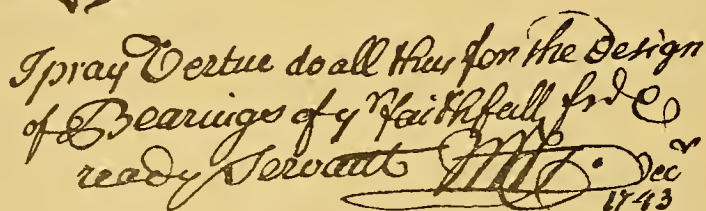 I pray Vertue do all thus for the Design
of Bearings of yr faithfull frd &
ready Servant Decr
1743